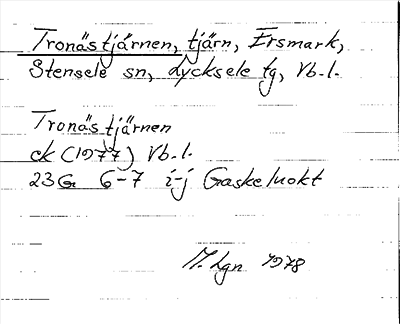 Tronästjärnen, tjärn, Ersmark,
Stensele sn, Lycksele tg, Vb.l.
Tronästjärnen
ek (1977) Vb.l.
23G 6-7 i-j Gaskeluokt
M. Lgn 1978